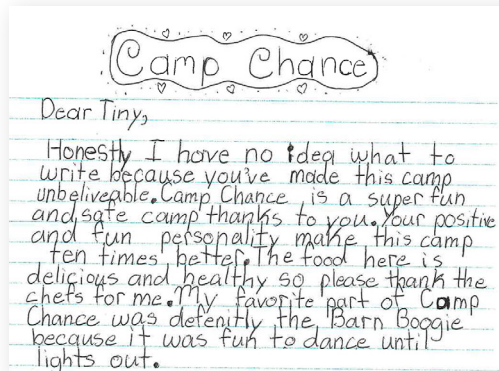 Camp Chance
Dear Tiny,
Honestly I have no idea what to
write because you've made this camp
unbeliveable. Camp Chance is a super fun
and safe camp thanks to you. Your positive
and fun personality make this camp
ten times better. The food here is
delicious and healthy so please thank the
chefs for me. My favorite part of Camp
Chance was defenitly the Barn Boogie
because it was fun to dance until
lights out.